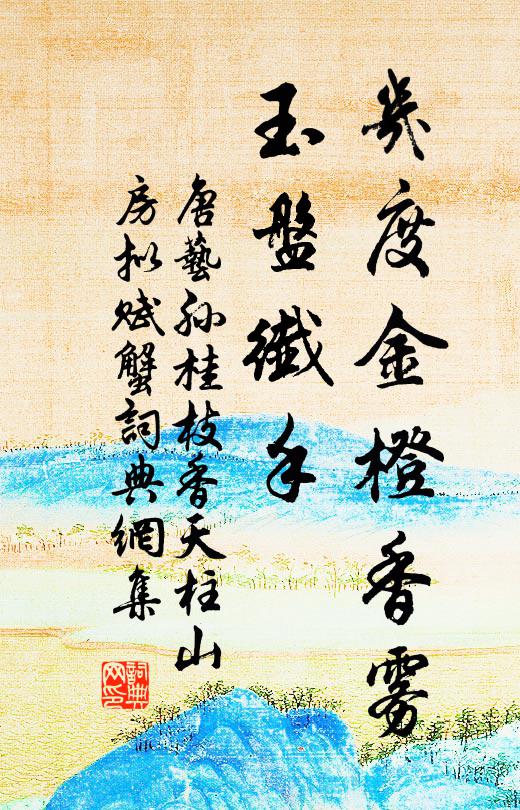 幾度金橙香雾
玉盤纖手
唐藝孫桂枝香天柱山
房拟賦蟹詞典網集
詞典
网印